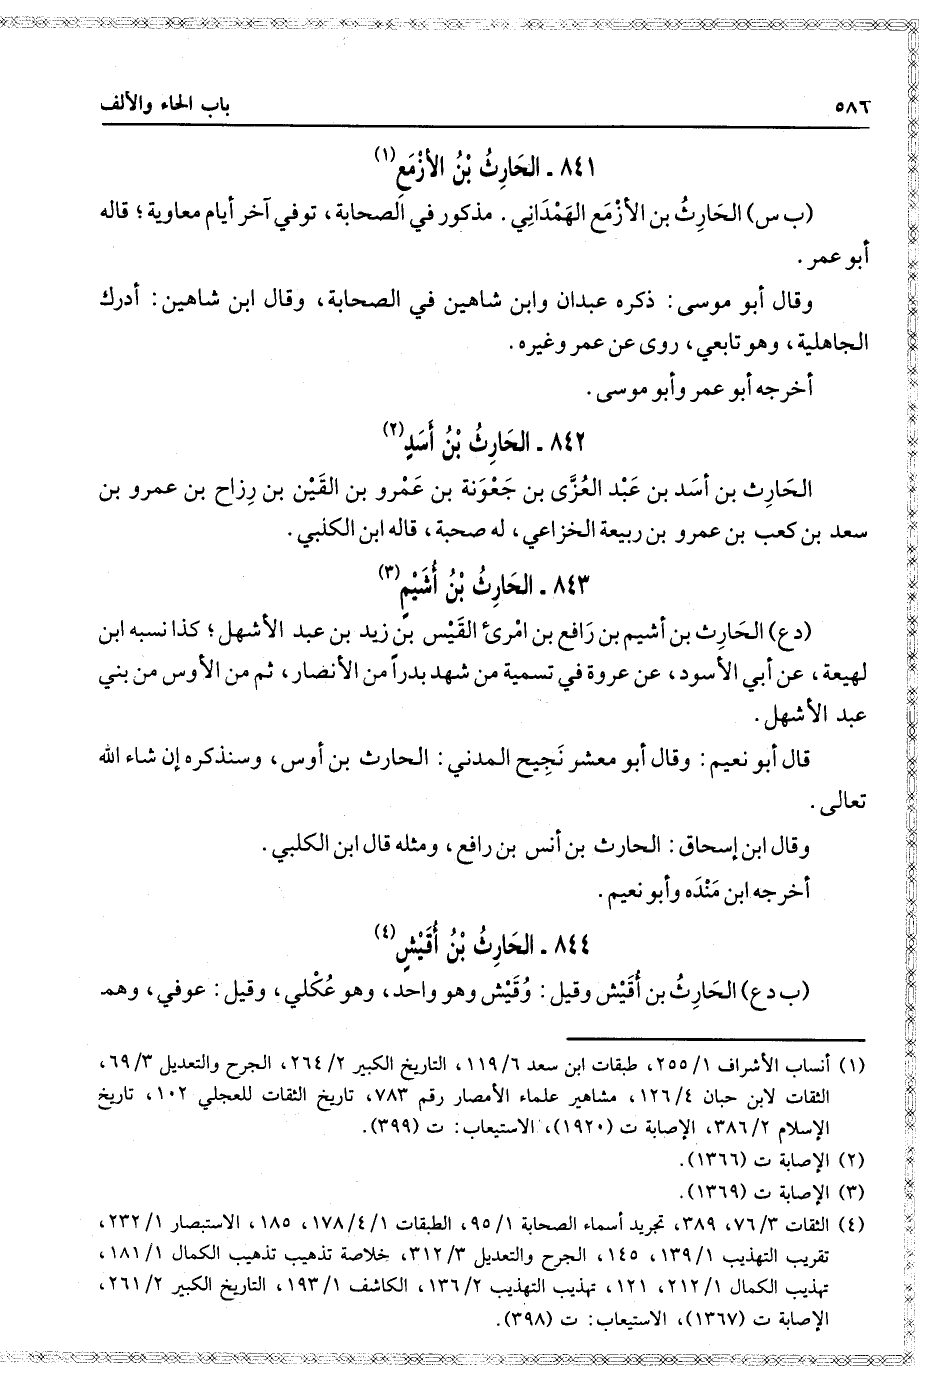 ٥٨٦ باب الحاء والألف
٨٤١ ـ الحَارِثُ بْنُ الأزْمَعِ(١)
(ب س) الحَارِثُ بن الأزْمَع الهَمْدَانِي . مذكور في الصحابة، توفي آخر أيام معاوية؛ قاله
أبو عمر.
وقال أبو موسى: ذكره عبدان وابن شاهين في الصحابة، وقال ابن شاهين: أدرك
الجاهلية، وهو تابعي، روى عن عمر وغيره.
أخرجه أبو عمر وأبو موسى.
٨٤٢ ـ الحَارِثُ بْنُ أَسَدٍ(٢)
الحَارِث بن أسَد بن عَبْد العُزَّى بن جَعْوَنة بن عَمْرو بن القَيْن بن رِزاح بن عمرو بن
سعد بن كعب بن عمرو بن ربيعة الخزاعي، له صحبة، قاله ابن الكلبي.
٨٤٣ ـ الحَارِثُ بْنُ أُشَيْمٍ(٣)
(دع) الحَارِث بن أشيم بن رَافع بن امْرئ القَيْس بن زيد بن عبد الأشهل؛ كذا نسبه ابن
لهيعة، عن أبي الأسود، عن عروة في تسمية من شهد بدراً من الأنصار، ثم من الأوس من بني
عبد الأشهل.
قال أبو نعيم: وقال أبو معشر نَجِيح المدني: الحارث بن أوس، وسنذكره إن شاء الله
تعالى.
وقال ابن إسحاق: الحارث بن أنس بن رافع، ومثله قال ابن الكلبي.
أخرجه ابن مَنْدَه وأبو نعيم.
٨٤٤ ـ الحَارِثُ بْنُ أُقَيْشٍ(٤)
(ب دع) الحَارِثُ بن أُقَيْش وقيل: وُقَيْش وهو واحد، وهو عُكْلي، وقيل: عوفي، وهما
(١) أنساب الأشراف ١/ ٢٥٥، طبقات ابن سعد ٦/ ١١٩، التاريخ الكبير ٢/ ٢٦٤، الجرح والتعديل ٣/ ٦٩،
الثقات لابن حبان ٤/ ١٢٦، مشاهير علماء الأمصار رقم ٧٨٣، تاريخ الثقات للعجلي ١٠٢، تاريخ
الإسلام ٢/ ٣٨٦، الإصابة ت (١٩٢٠)، الاستيعاب: ت (٣٩٩).
(٢) الإصابة ت (١٣٦٦).
(٣) الإصابة ت (١٣٦٩).
(٤) الثقات ٣/ ٧٦، ٣٨٩، تجريد أسماء الصحابة ١/ ٩٥، الطبقات ١/ ٤/ ١٧٨، ١٨٥، الاستبصار ١/ ٢٣٢،
تقريب التهذيب ١/ ١٣٩، ١٤٥، الجرح والتعديل ٣/ ٣١٢، خلاصة تذهيب تذهيب الكمال ١/ ١٨١،
تهذيب الكمال ١/ ٢١٢، ١٢١، تهذيب التهذيب ٢/ ١٣٦، الكاشف ١/ ١٩٣، التاريخ الكبير ٢/ ٢٦١،
الإصابة ت (١٣٦٧)، الاستيعاب: ت (٣٩٨).